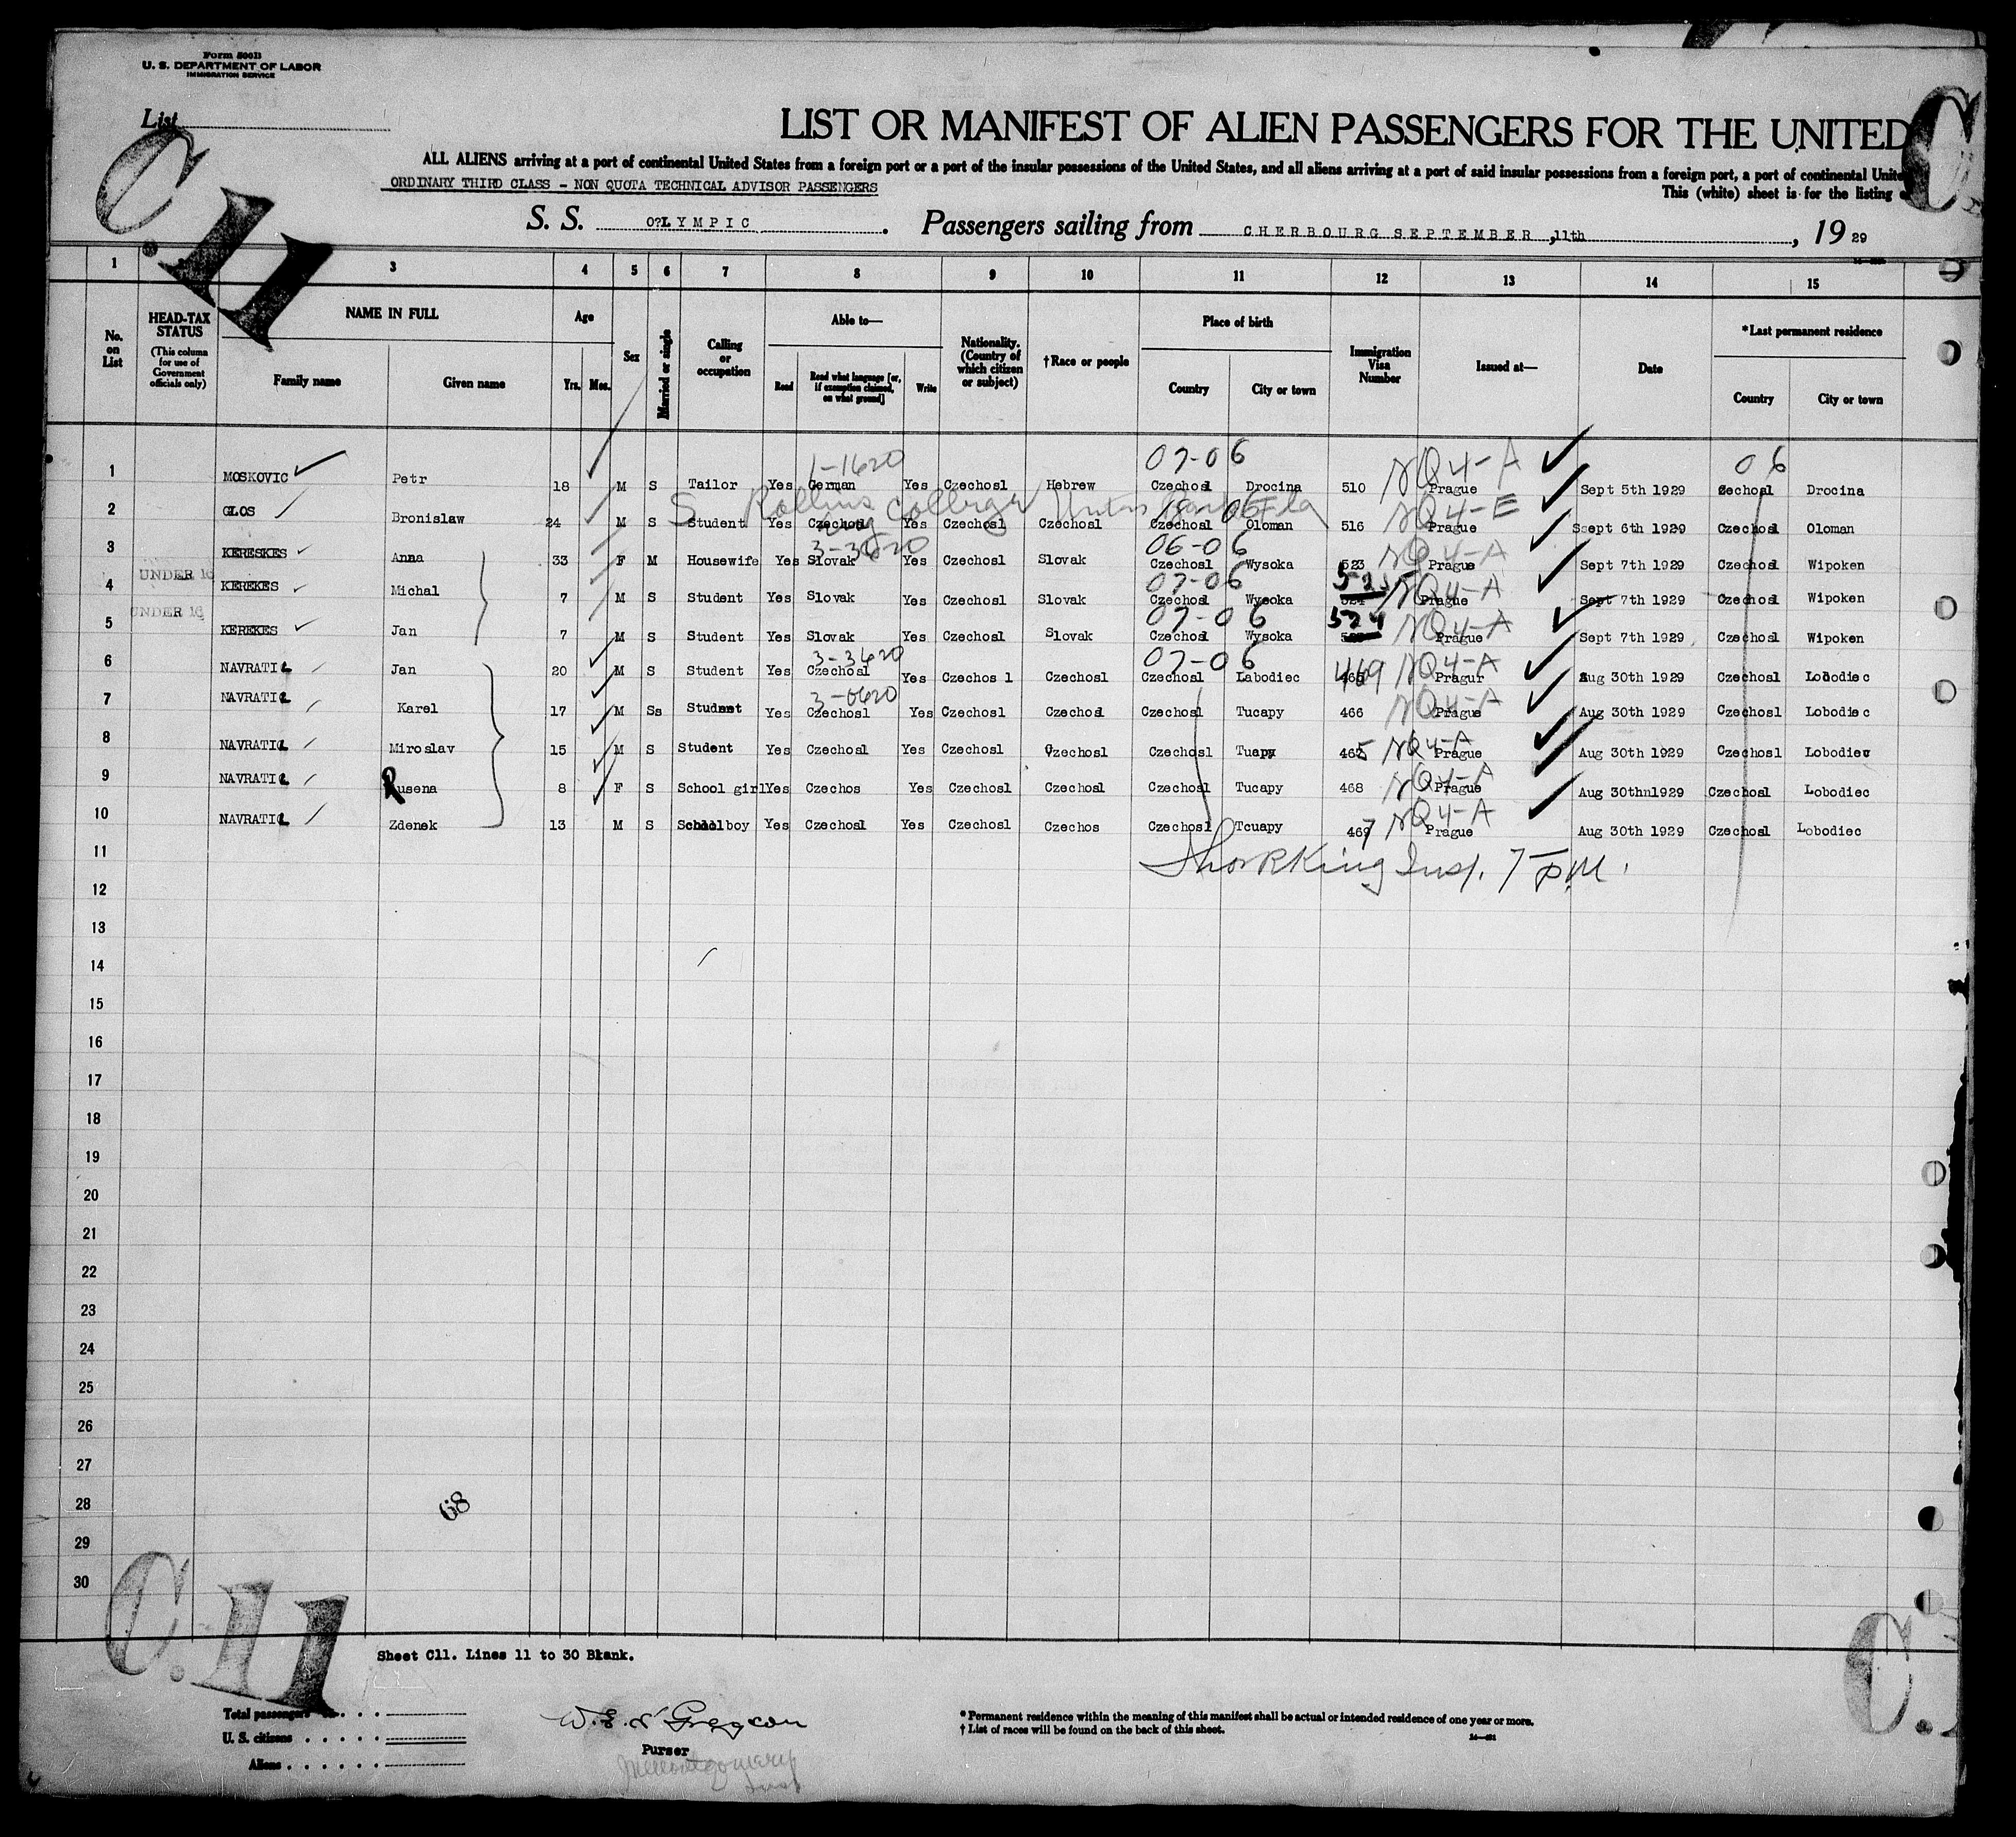 Form 500B
U. S. DEPARTMENT OF LABOR
IMMIGRATION SERVICE
List
C.11
C.
LIST OR MANIFEST OF ALIEN PASSENGERS FOR THE UNITED
ALL ALIENS arriving at a port of continental United States from a foreign port or a port of the insular possessions of the United States, and all aliens arriving at a port of said insular possessions from a foreign port, a port of continental Unite
ORDINARY THIRD CLASS - NON QUOTA TECHNICAL ADVISOR PASSENGERS
This (white) sheet is for the listing
S. S. O?LYMPIC. Passengers sailing from CHERBOURG SEPTEMBER ,11th, 19 29
1 3 4 5 6 7 8 9 10 11 12 13 14 15
No. on List
HEAD-TAX STATUS (This column for use of Government officials only)
NAME IN FULL Family name Given name
Age Yrs. Mos.
Sex
Married or single
Calling or occupation
Able to— Read Read what language [or, if exemption claimed, on what ground] Write
Nationality. (Country of which citizen or subject)
†Race or people
Place of birth Country City or town
Immigration Visa Number
Issued at—
Date
*Last permanent residence Country City or town
1-1620 07-06 NQ4-A 06
1 MOSKOVIC Petr 18 M S Tailor Yes German Yes Czechosl Hebrew Czechosl Drocina 510 Prague Sept 5th 1929 Czechosl Drocina
S Rollins College Fla NQ4-E
2 GLOS Bronislaw 24 M S Student Yes Czechosl Yes Czechosl Czechosl Czechosl Oloman 516 Prague Ssept 6th 1929 Czechosl Oloman
3-3620 06-06 NQ4-A
3 KERESKES Anna 33 F M Housewife Yes Slovak Yes Czechosl Slovak Czechosl Wysoka 523 Prague Sept 7th 1929 Czechosl Wipoken
UNDER 16 07-06 525 NQ4-A
4 KEREKES Michal 7 M S Student Yes Slovak Yes Czechosl Slovak Czechosl Wysoka 524 Prague Sept 7th 1929 Czechosl Wipoken
UNDER 16 07-06 524 NQ4-A
5 KEREKES Jan 7 M S Student Yes Slovak Yes Czechosl Slovak Czechosl Wysoka Prague Sept 7th 1929 Czechosl Wipoken
3-3620 07-06 NQ4-A
6 NAVRATIL Jan 20 M S Student Yes Czechosl Yes Czechos l Czechosl Czechosl Labodiec 469 Pragur Aug 30th 1929 Czechosl Lobodiec
3-0620 NQ4-A
7 NAVRATIL Karel 17 M Ss Student Yes Czechosl Yes Czechosl Czechosl Czechosl Tucapy 466 Prague Aug 30th 1929 Czechosl Lobodiec
8 NAVRATIL Miroslav 15 M S Student Yes Czechosl Yes Czechosl Czechosl Czechosl Tuapy 465 NQ4-A Prague Aug 30th 1929 Czechosl Lobodiev
9 NAVRATIL Rusena 8 F S School girl Yes Czechos Yes Czechosl Czechosl Czechosl Tucapy 468 NQ4-A Prague Aug 30thn1929 Czechosl Lobodiec
10 NAVRATIL Zdenek 13 M S School boy Yes Czechosl Yes Czechosl Czechos Czechosl Tcuapy 467 NQ4-A Prague Aug 30th 1929 Czechosl Lobodiec
11 King Insp. 7 P.M.
12
13
14
15
16
17
18
19
20
21
22
23
24
25
26
27
28
68
29
30
C.11
C.
Sheet C11. Lines 11 to 30 Blank.
Total passengers
U. S. citizens
Aliens
Purser
Montgomery
Insp
* Permanent residence within the meaning of this manifest shall be actual or intended residence of one year or more.
† List of races will be found on the back of this sheet.